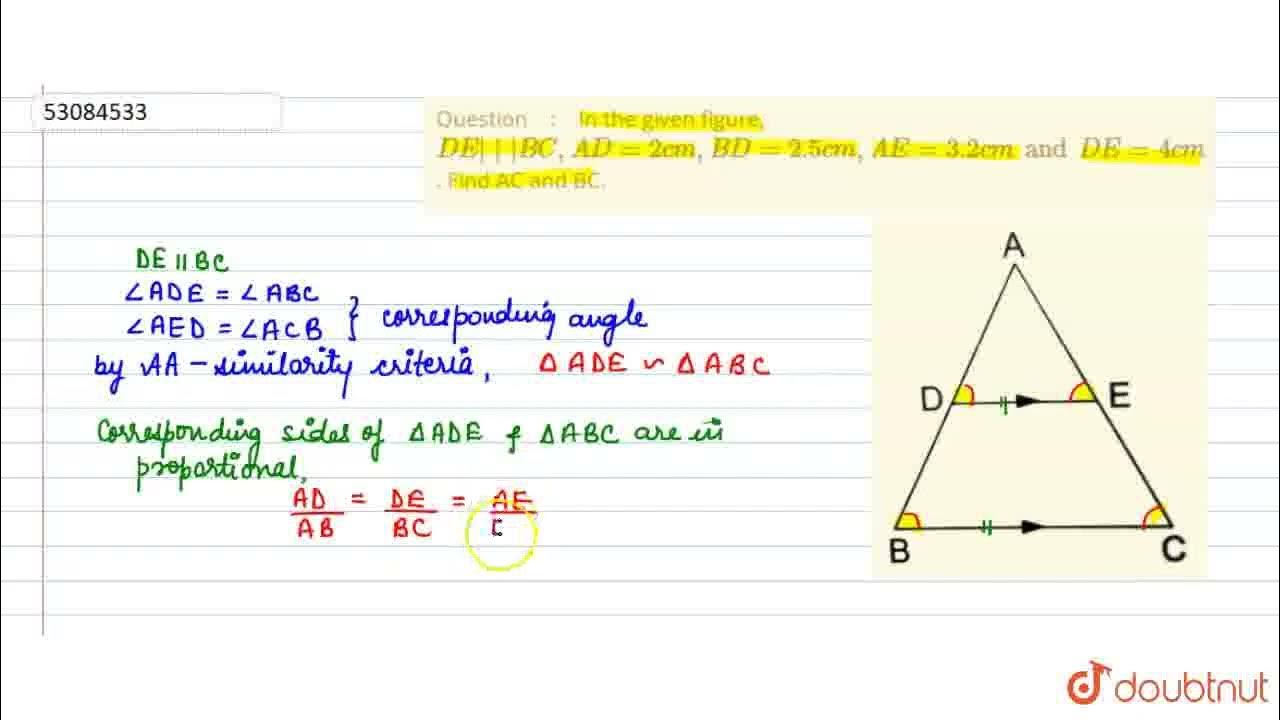 53084533
Question : In the given figure,
DE| | |BC, AD = 2cm, BD = 2.5cm, AE = 3.2cm and DE = 4cm
. Find AC and BC.
DE || BC
∠ADE = ∠ABC
∠AED = ∠ACB } corresponding angle
by AA - similarity criteria, Δ ADE ∽ Δ ABC
Corresponding sides of ΔADE & ΔABC are in
proportional,
AD = DE = AE
AB BC
A
D E
B C
doubtnut